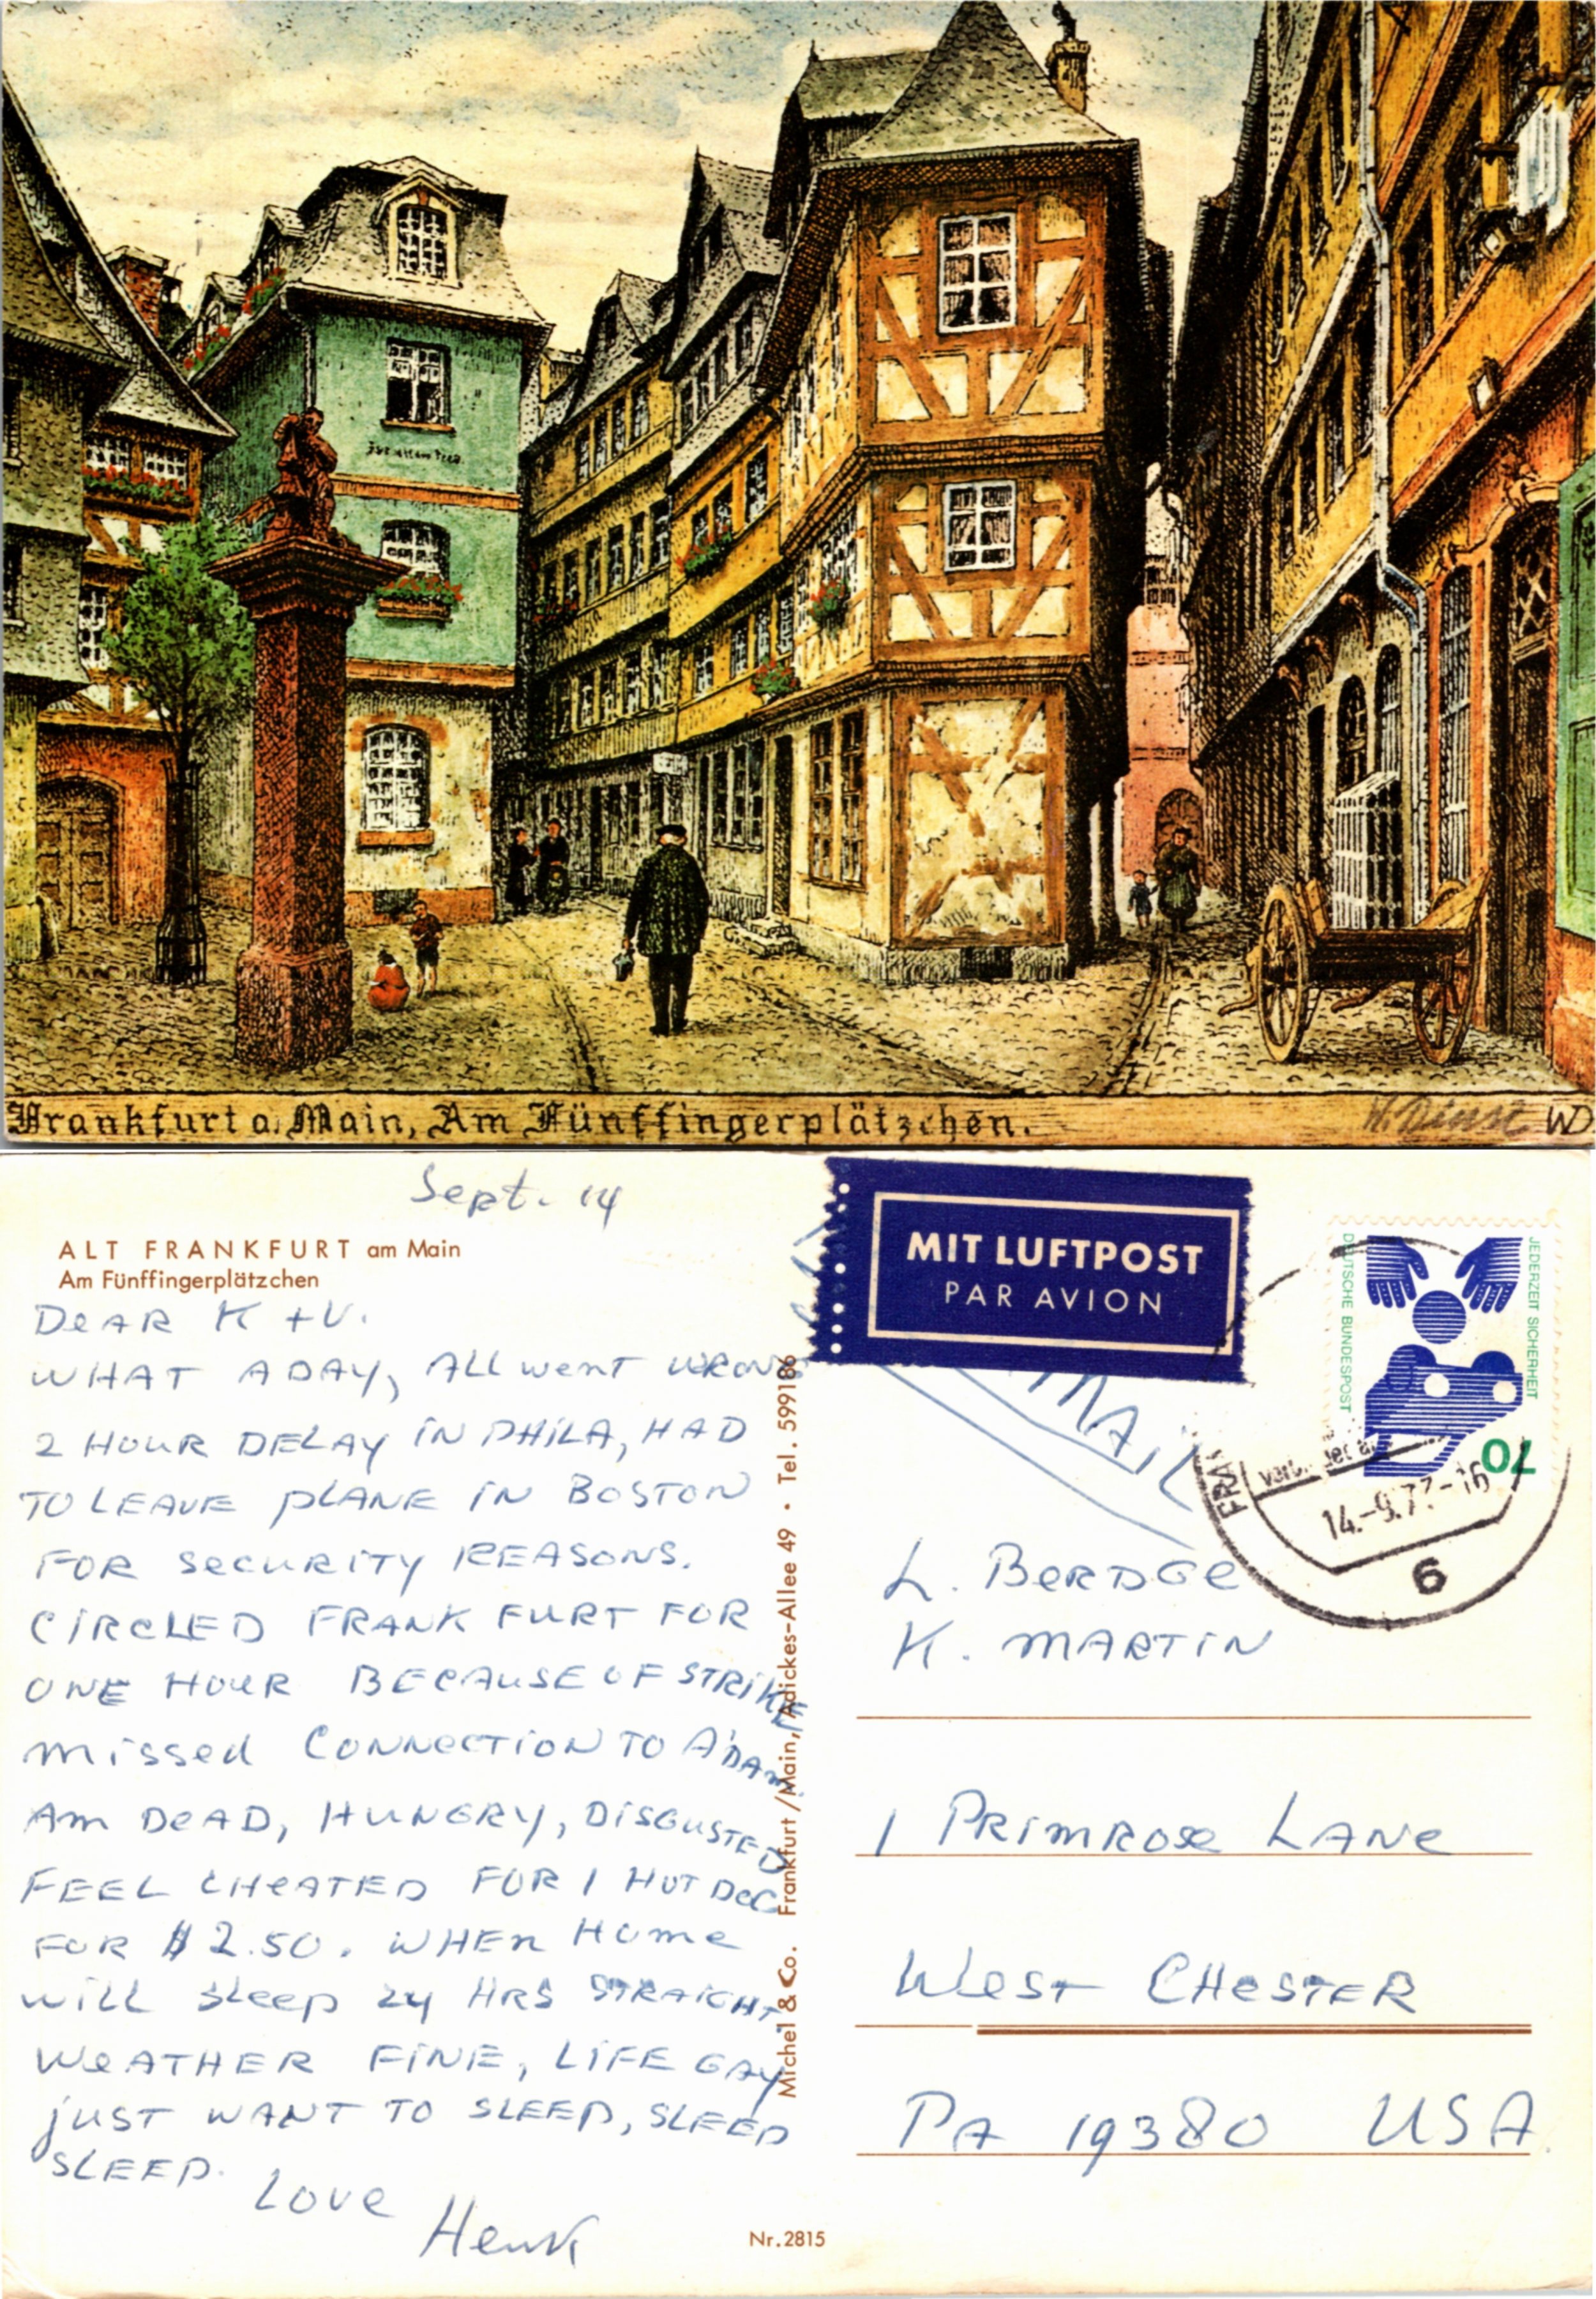 Frankfurt a. Main, Am Fünffingerplätzchen.
W. Dinst WD
Sept. 14
ALT FRANKFURT am Main
Am Fünffingerplätzchen
DEAR K + V.
WHAT A DAY, ALL WENT WRONG
2 HOUR DELAY IN PHILA, HAD
TO LEAVE PLANE IN BOSTON
FOR SECURITY REASONS.
CIRCLED FRANKFURT FOR
ONE HOUR BECAUSE OF STRIKE
MISSED CONNECTION TO A'DAM.
AM DEAD, HUNGRY, DISGUSTED
FEEL CHEATED FOR 1 HOT DOG
FOR $2.50. WHEN HOME
WILL SLEEP 24 HRS STRAIGHT.
WEATHER FINE, LIFE GAY
JUST WANT TO SLEEP, SLEEP
SLEEP.
Love
Henk
Michel & Co. Frankfurt/Main, Adickes-Allee 49 · Tel. 599186
Nr. 2815
MIT LUFTPOST
PAR AVION
MAIL
DEUTSCHE BUNDESPOST
JEDERZEIT SICHERHEIT
70
14.-9.77-16
6
L. BERDGE
K. MARTIN
1 PRIMROSE LANE
WEST CHESTER
PA 19380 USA